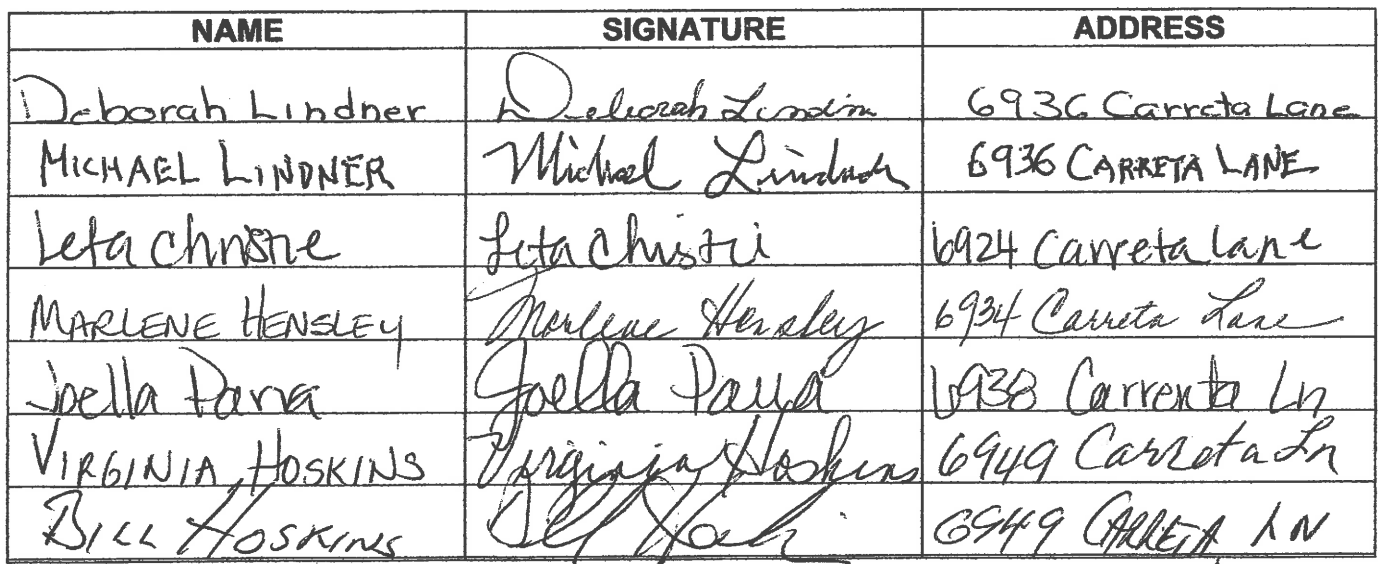 NAME SIGNATURE ADDRESS
Deborah Lindner Deborah Lindner 6936 Carreta Lane
MICHAEL LINDNER Michael Lindner 6936 CARRETA LANE
Leta Christie Leta Christie 6924 Carreta Lane
MARLENE HENSLEY Marlene Hensley 6934 Carreta Lane
Joella Parra Joella Parra 6938 Carrenta Ln
VIRGINIA HOSKINS Virginia Hoskins 6949 Carreta Ln
BILL HOSKINS Bill Hoskins 6949 CARRETA LN